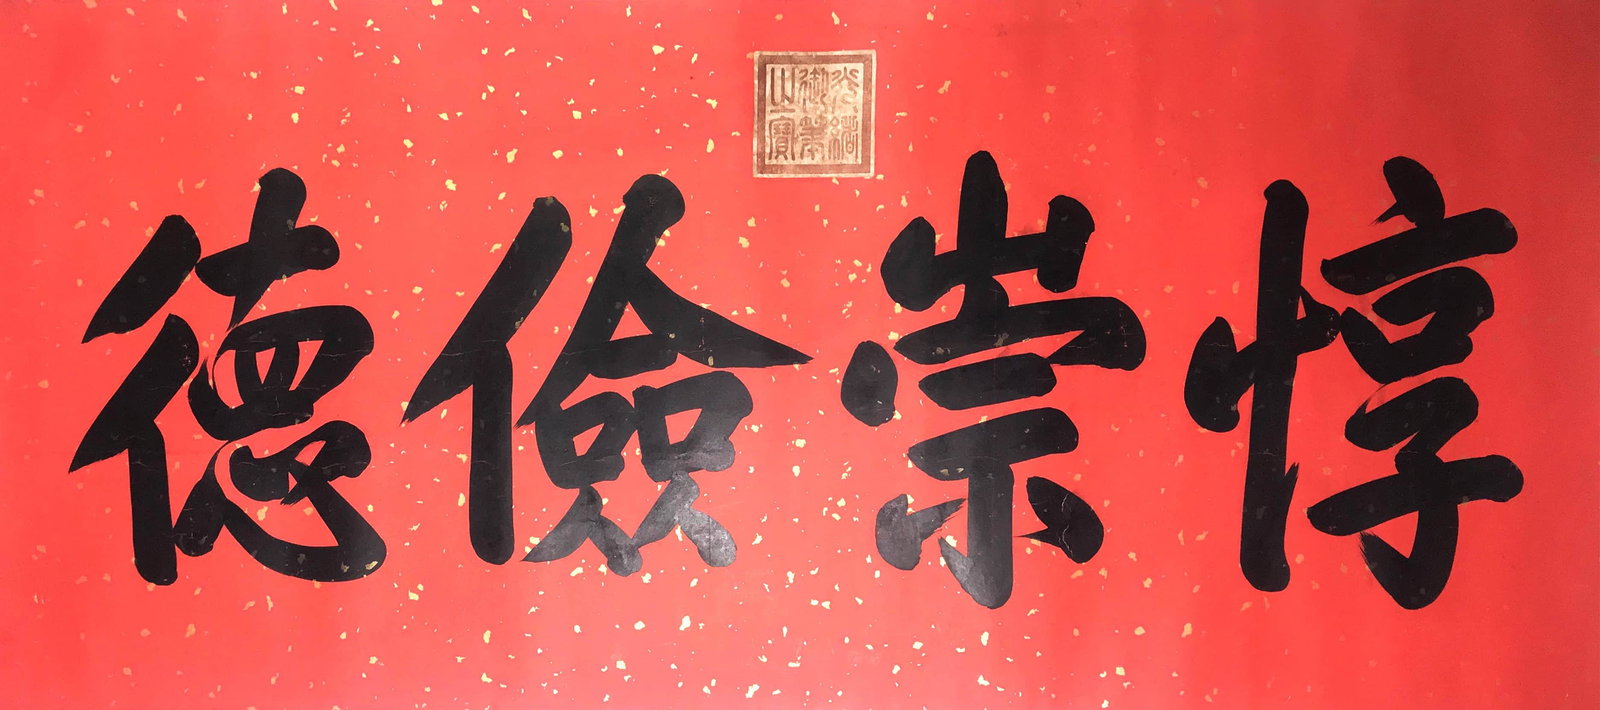 惇崇儉德
光緒御筆之寶